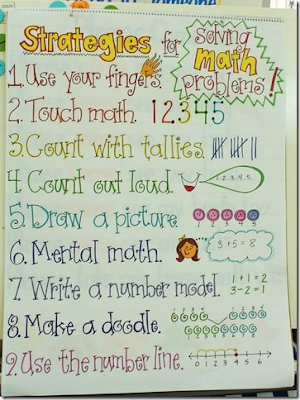 Strategies for solving math problems!
1. Use your fingers.
2. Touch math. 1 2 3 4 5
3. Count with tallies.
4. Count out loud. 1..2..3..4..5..
5. Draw a picture.
6. Mental math. 3+5=8
7. Write a number model. 1+1=2
3-2=1
8. Make a doodle.
9. Use the number line. 0 1 2 3 4 5 6